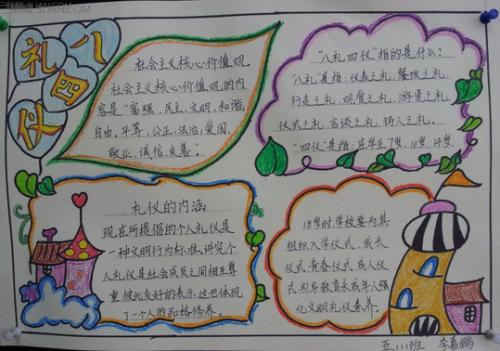 八礼四仪
社会主义核心价值观
社会主义核心价值观的内
容是"富强、民主、文明、和谐、
自由、平等、公正、法治、爱国、
敬业、诚信、友善"。
"八礼四仪"指的是什么?
"八礼"是指:仪表之礼、餐饮之礼、
行走之礼、观赏之礼、游览之礼、
仪式之礼、言谈之礼、待人之礼。
"四仪"是指:在学生7岁、10岁、14岁、
礼仪的内涵
现在所提倡的个人礼仪是
一种文明行为标准,讲究个
人礼仪是社会成员之间相互尊
重,彼此友好的表示,这也体现
了一个人的品格修养。
18岁时,学校要为其
组织入学仪式、成长
仪式、青春仪式、成人仪
式,引导教育未成年人强
化文明礼仪素养。
五(1)班 李嘉鹏